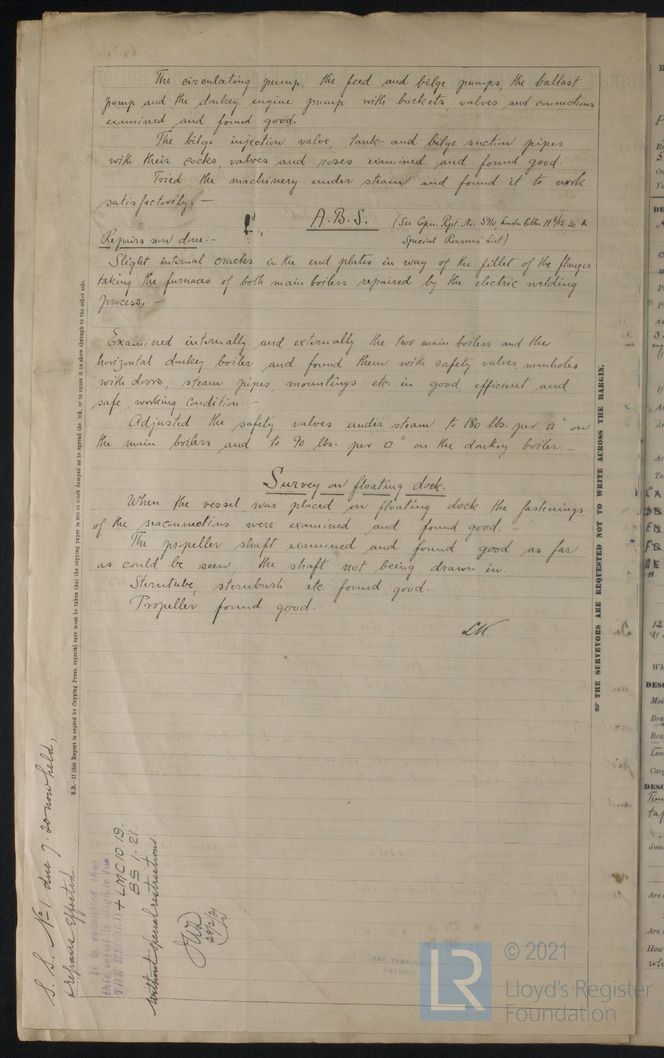 The circulating pump, the feed and bilge pumps, the ballast
pump and the donkey engine pump with buckets, valves and connections
examined and found good.
The bilge injection valve, tank and bilge suction pipes
with their cocks, valves and roses examined and found good.
Tried the machinery under steam and found it to work
satisfactorily. —
A.B.S. (See Open. Rpt. No.
Repairs now done. — Special Reasons List)
Slight internal cracks in the end plates in way of the fillet of the flanges
taking the furnaces of both main boilers repaired by the electric welding
process. —
Examined internally and externally the two main boilers and the
horizontal donkey boiler and found them with safety valves, manholes
with doors, steam pipes, mountings etc. in good efficient and
safe working condition. —
Adjusted the safety valves under steam to 180 lbs. per □" on
the main boilers and to 90 lbs. per □" on the donkey boiler. —
Survey on floating dock.
When the vessel was placed on floating dock the fastenings
of the seaconnections were examined and found good. —
The propeller shaft examined and found good as far
as could be seen, the shaft not being drawn in
Sterntube, sternbush etc. found good.
Propeller found good.
LK
N.B.—If this Report is copied by Copying Press, especial care must be taken that the copying paper is not so much damped as to spread the ink, or to cause it to show through to the other side.
THE SURVEYORS ARE REQUESTED NOT TO WRITE ACROSS THE MARGIN.
S. S. No 1 due 7. 20 now held,
& repairs effected
It is submitted that
this vessel is eligible for
THE RECORD + LMC 10.19.
BS 1.21.
without special restrictions.
28/2/21
© 2021
LR
Lloyd's Register
Foundation